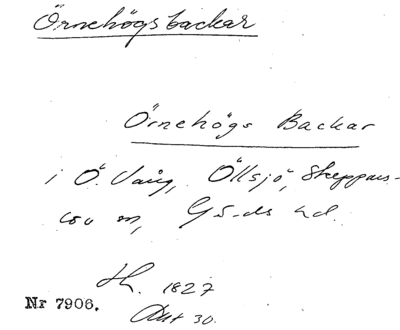 Örnehögsbackar
Örnehögs Backar
i Ö. Vång, Öllsjö, Skeppars-
löv sn, Gärds hd.
Sk. 1827
Nr 7906. Akt 30.